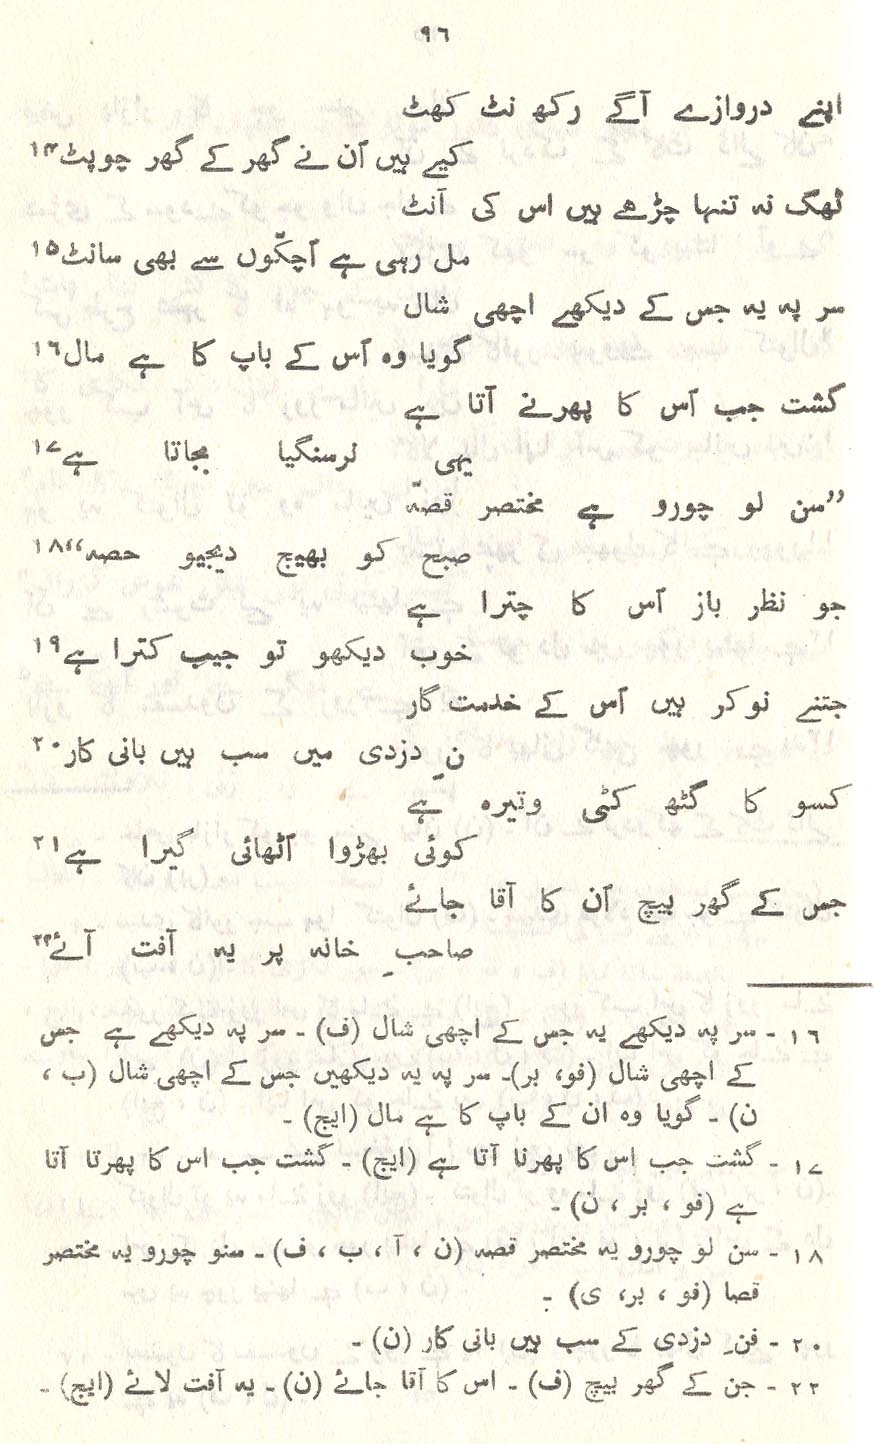 ۹۶
اپنے دروازے آگے رکھ نٹ کھٹ
کیے ہیں اُن نے گھر کے گھر چوپٹ۱۴
ٹھگ نہ تنہا چڑھے ہیں اس کی آنٹ
مل رہی ہے اُچکّوں سے بھی سانٹ۱۵
سر پہ یہ جس کے دیکھے اچھی شال
گویا وہ اُس کے باپ کا ہے مال۱۶
گشت جب اُس کا پھرنے آتا ہے
یہی نرسنگیا بجاتا ہے۱۷
”سن لو چورو ہے مختصر قصّہ
صبح کو بھیج دیجیو حصہ“۱۸
جو نظر باز اُس کا چترا ہے
خوب دیکھو تو جیب کترا ہے۱۹
جتنے نوکر ہیں اُس کے خدمت گار
نِ دزدی میں سب ہیں بانی کار۲۰
کسو کا گٹھ کٹی وتیرہ ہے
کوئی بھڑوا اُٹھائی گیرا ہے۲۱
جس کے گھر بیچ اُن کا آقا جائے
صاحبِ خانہ پر یہ آفت آئے۲۲
۱۶ - سر پہ دیکھے یہ جس کے اچھی شال (ف) - سر پہ دیکھے ہے جس
کے اچھی شال (فو، بر)- سر پہ یہ دیکھیں جس کے اچھی شال (ب ،
ن) - گویا وہ ان کے باپ کا ہے مال (ایچ) -
۱۷ - گشت جب اِس کا پھرنا آتا ہے (ایچ) - گشت جب اس کا پھرتا آتا
ہے (فو ، بر ، ن) -
۱۸ - سن لو چورو یہ مختصر قصہ (ن ، آ ، ب ، ف) - سنو چورو یہ مختصر
قصا (فو ، بر، ی) -
۲۰ - فنِ دزدی کے سب ہیں بانی کار (ن) -
۲۲ - جن کے گھر بیچ (ف) - اس کا آقا جائے (ن) - یہ آفت لائے (ایچ) -